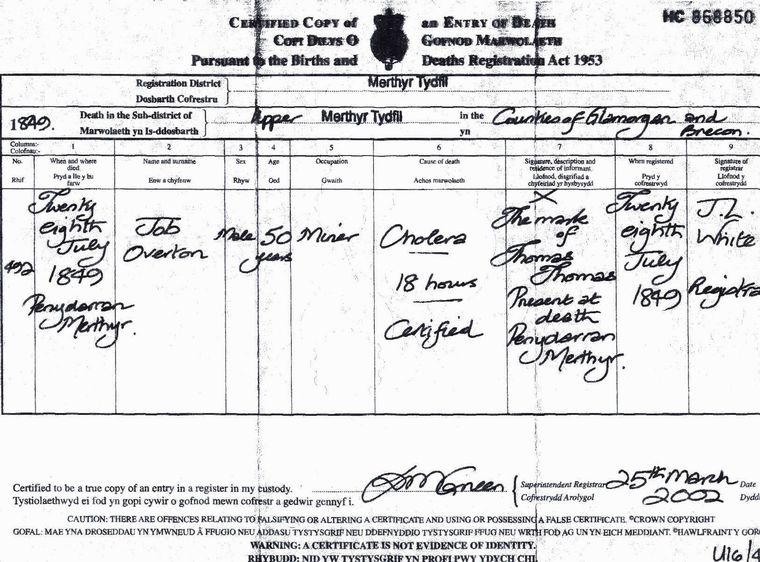 HC 868850
CERTIFIED COPY OF an ENTRY OF DEATH
COPI DILYS O GOFNOD MARWOLAETH
Pursuant to the Births and Deaths Registration Act 1953
Registration District Merthyr Tydfil
Dosbarth Cofrestru
1849. Death in the Sub-district of Upper Merthyr Tydfil in the Counties of Glamorgan and
Marwolaeth yn Is-ddosbarth yn Brecon.
Columns:- 1 2 3 4 5 6 7 8 9
Colofnau:-
No. When and where died Name and surname Sex Age Occupation Cause of death Signature, description and residence of informant When registered Signature of registrar
Rhif Pryd a lle y bu farw Enw a chyfenw Rhyw Oed Gwaith Achos marwolaeth Llofnod, disgrifiad a chyfeiriad yr hysbysydd Pryd y cofrestrwyd Llofnod y cofrestrydd
492
Twenty
eighth
July
1849
Penydarran
Merthyr.
Job
Overton
Male
50
years
Miner
Cholera
18 hours
Certified
X
The mark
of
Thomas
Thomas
Present at
death
Penydarran
Merthyr.
Twenty
eighth
July
1849
J.L.
White
Registra
Certified to be a true copy of an entry in a register in my custody. Superintendent Registrar 25th March Date
Tystiolaethwyd ei fod yn gopi cywir o gofnod mewn cofrestr a gedwir gennyf i. Cofrestrydd Arolygol 2002 Dydd
CAUTION: THERE ARE OFFENCES RELATING TO FALSIFYING OR ALTERING A CERTIFICATE AND USING OR POSSESSING A FALSE CERTIFICATE. ©CROWN COPYRIGHT
GOFAL: MAE YNA DROSEDDAU YN YMWNEUD Â FFUGIO NEU ADDASU TYSTYSGRIF NEU DDEFNYDDIO TYSTYSGRIF FFUG NEU WRTH FOD AG UN YN EICH MEDDIANT. ©HAWLFRAINT Y GOR
WARNING: A CERTIFICATE IS NOT EVIDENCE OF IDENTITY.
RHYBUDD: NID YW TYSTYSGRIF YN PROFI PWY YDYCH CHI.